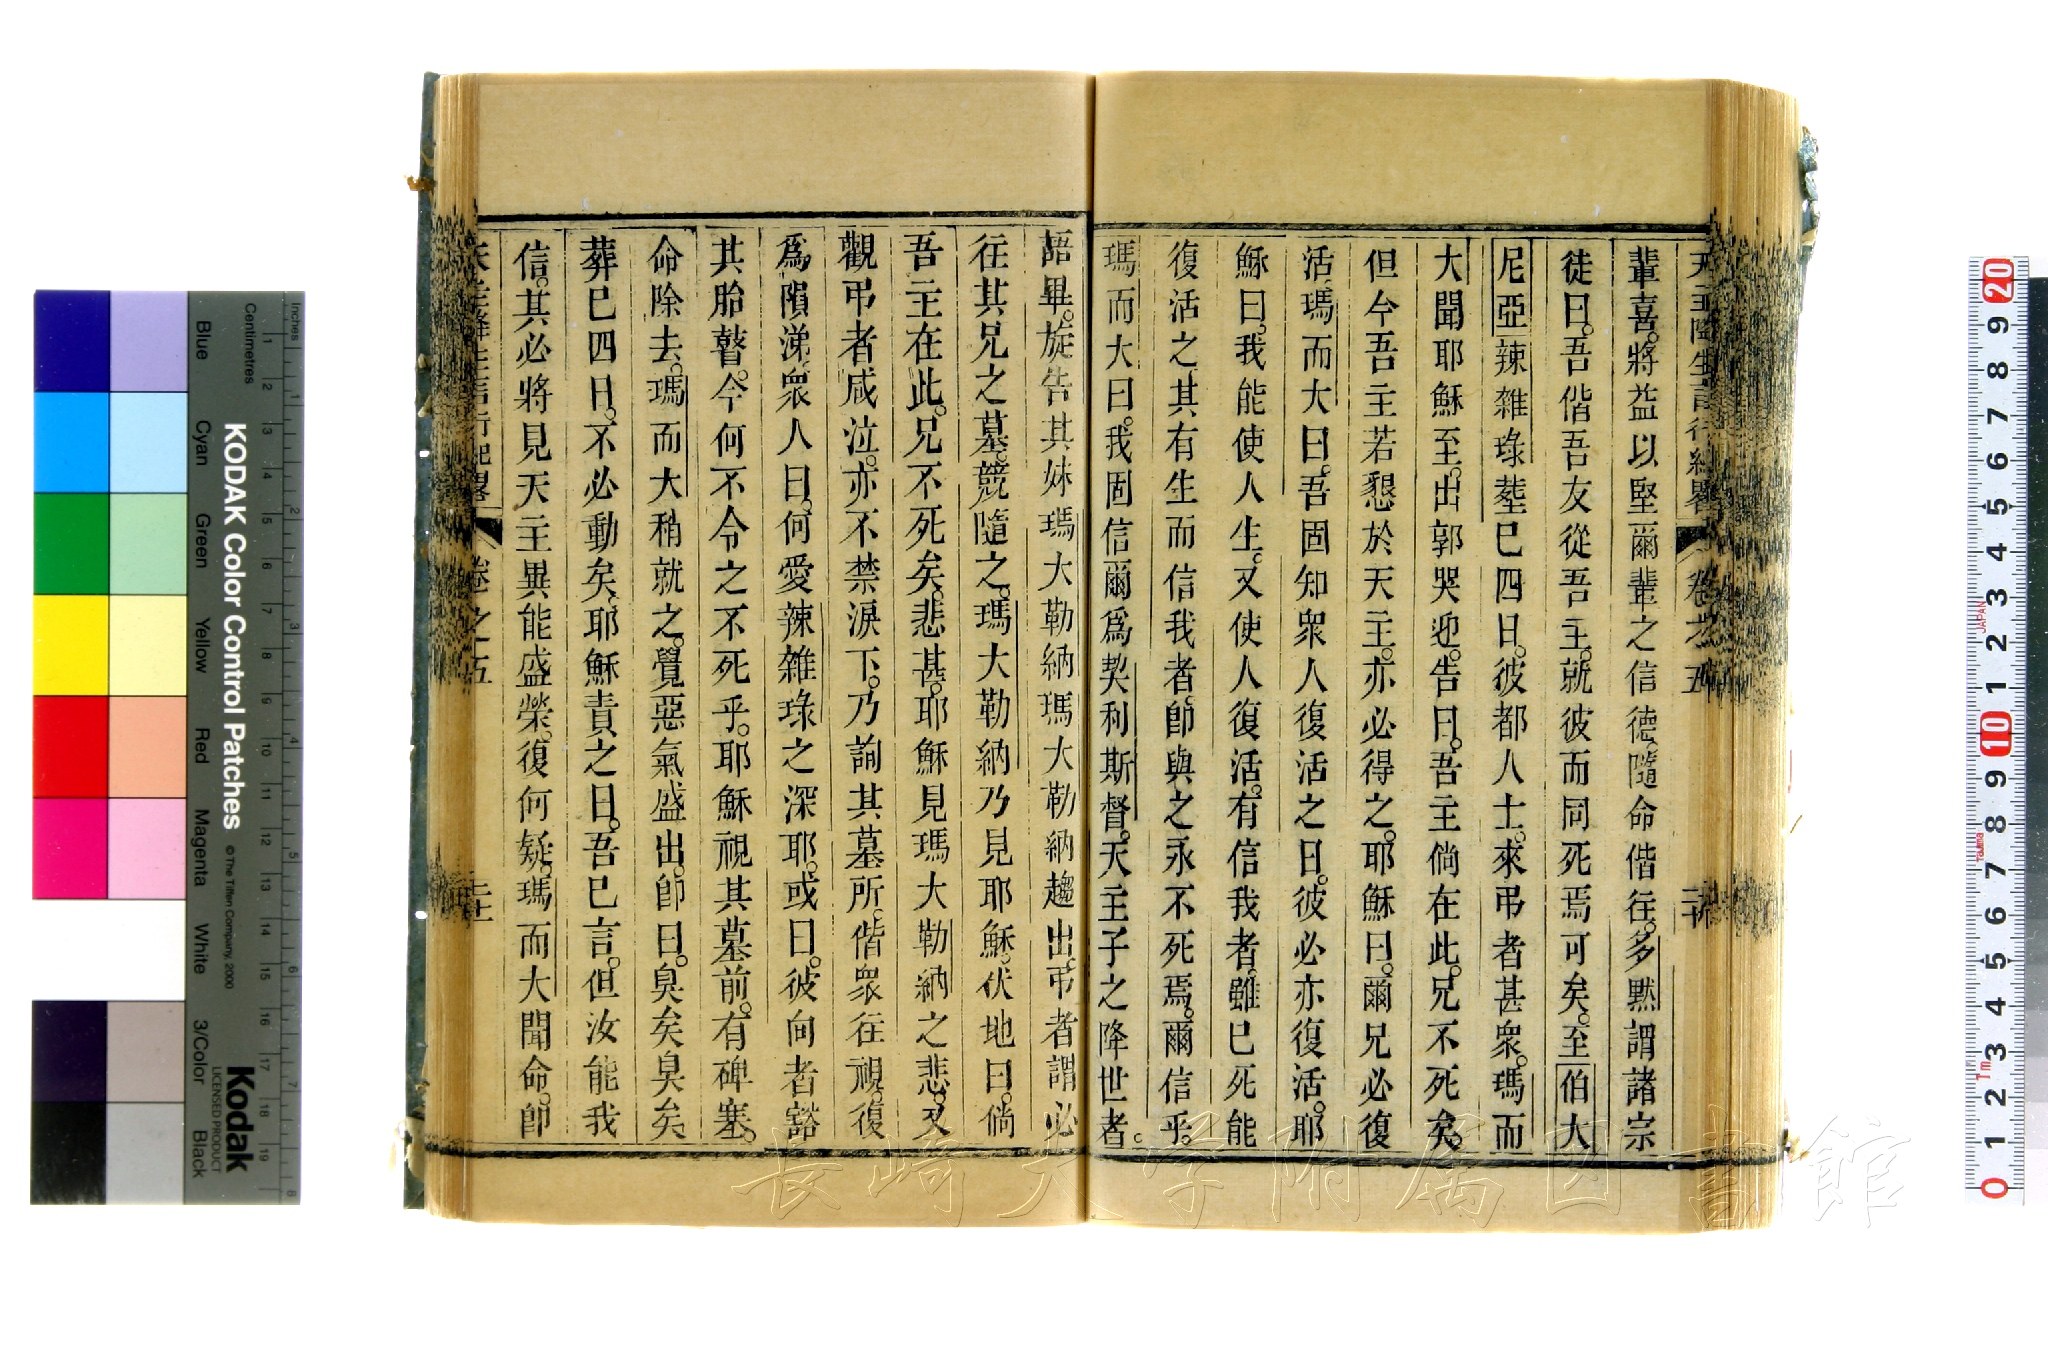 天主降生言行紀畧 卷之五 二十
輩喜。將益以堅爾輩之信德。隨命偕往。多默謂諸宗
徒曰。吾偕吾友從吾主。就彼而同死焉可矣。至伯大
尼亞辣雜琭塟已四日。彼都人士。來弔者甚衆。瑪而
大聞耶穌至。出郭哭迎。告曰。吾主倘在此。兄不死矣。
但今吾主若懇於天主。亦必得之。耶穌曰。爾兄必復
活。瑪而大曰。吾固知衆人復活之日。彼必亦復活。耶
穌曰。我能使人生。又使人復活。有信我者。雖已死能
復活之。其有生而信我者。卽與之永不死焉。爾信乎。
瑪而大曰。我固信爾爲契利斯督。天主子之降世者。
語畢。旋告其妹瑪大勒納瑪大勒納趨出。弔者謂必
往其兄之墓。競隨之。瑪大勒納乃見耶穌。伏地曰。倘
吾主在此。兄不死矣。悲甚。耶穌見瑪大勒納之悲。又
觀弔者咸泣。亦不禁淚下。乃詢其墓所。偕衆往視。復
爲隕涕。衆人曰。何愛辣雜琭之深耶。或曰。彼向者豁
其胎瞽。今何不令之不死乎。耶穌視其墓前。有碑塞。
命除去。瑪而大稍就之。覺惡氣盛出。卽曰。臭矣臭矣
葬已四日。不必動矣。耶穌責之曰。吾已言。但汝能我
信。其必將見天主異能盛榮。復何疑。瑪而大聞命。卽
天主降生言行紀畧 卷之五 二十一
KODAK Color Control Patches
© The Tiffen Company, 2000
Kodak
LICENSED PRODUCT
Inches
Centimetres
Blue
Cyan
Green
Yellow
Red
Magenta
White
3/Color
Black
JAPAN
Tajima
長崎大学附属図書館